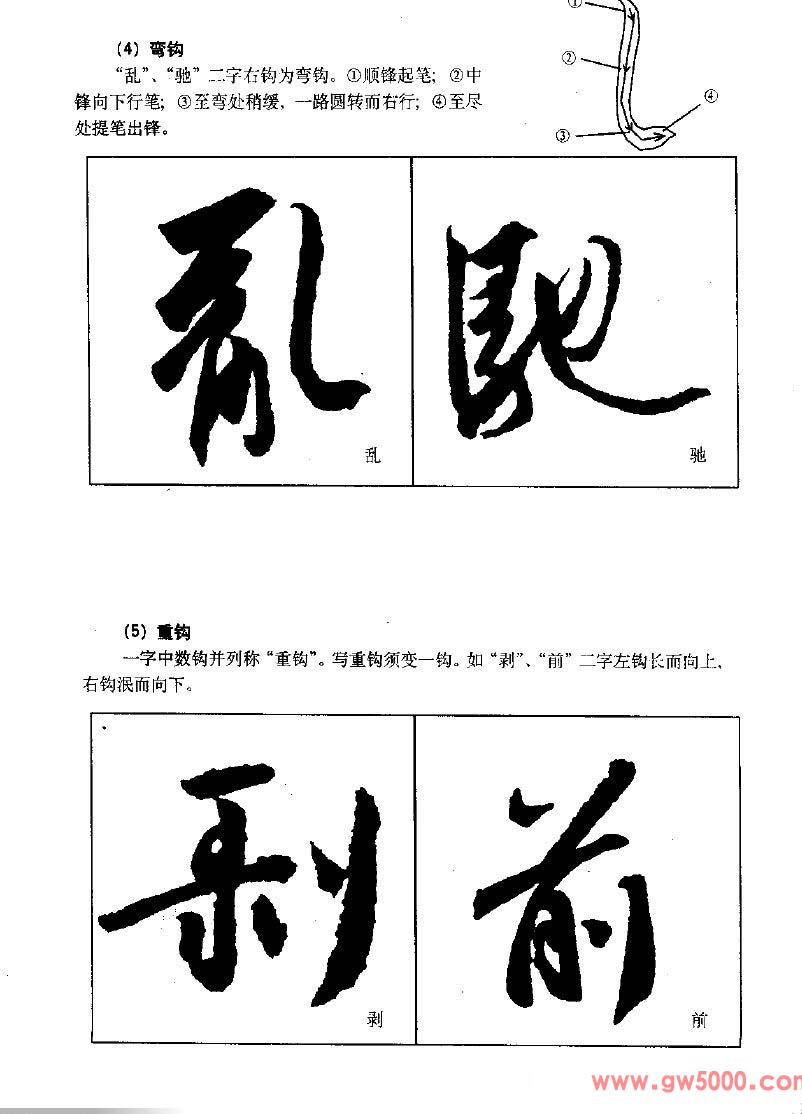 (4) 弯钩
①
“乱”、“驰”二字右钩为弯钩。①顺锋起笔；②中
②
锋向下行笔；③至弯处稍缓，一路圆转而右行；④至尽
④
处提笔出锋。
③
亂 馳
乱 驰
(5) 重钩
一字中数钩并列称“重钩”。写重钩须变一钩。如“剥”、“前”二字左钩长而向上，
右钩泯而向下。
剥 前
剥 前
www.gw5000.com